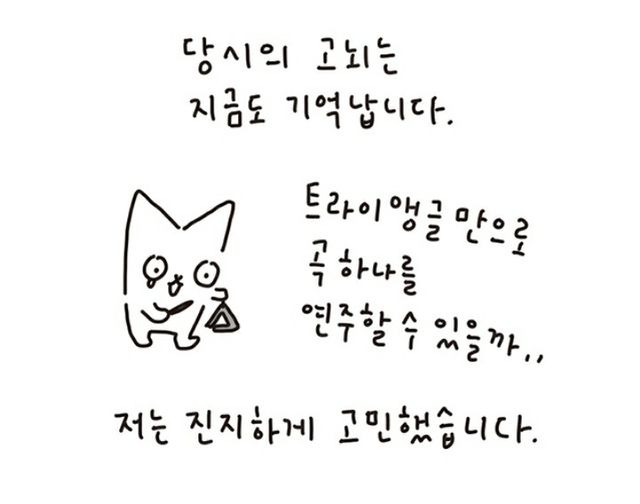 당시의 고뇌는
지금도 기억납니다.
트라이앵글 만으로
곡 하나를
연주할 수 있을까..
저는 진지하게 고민했습니다.